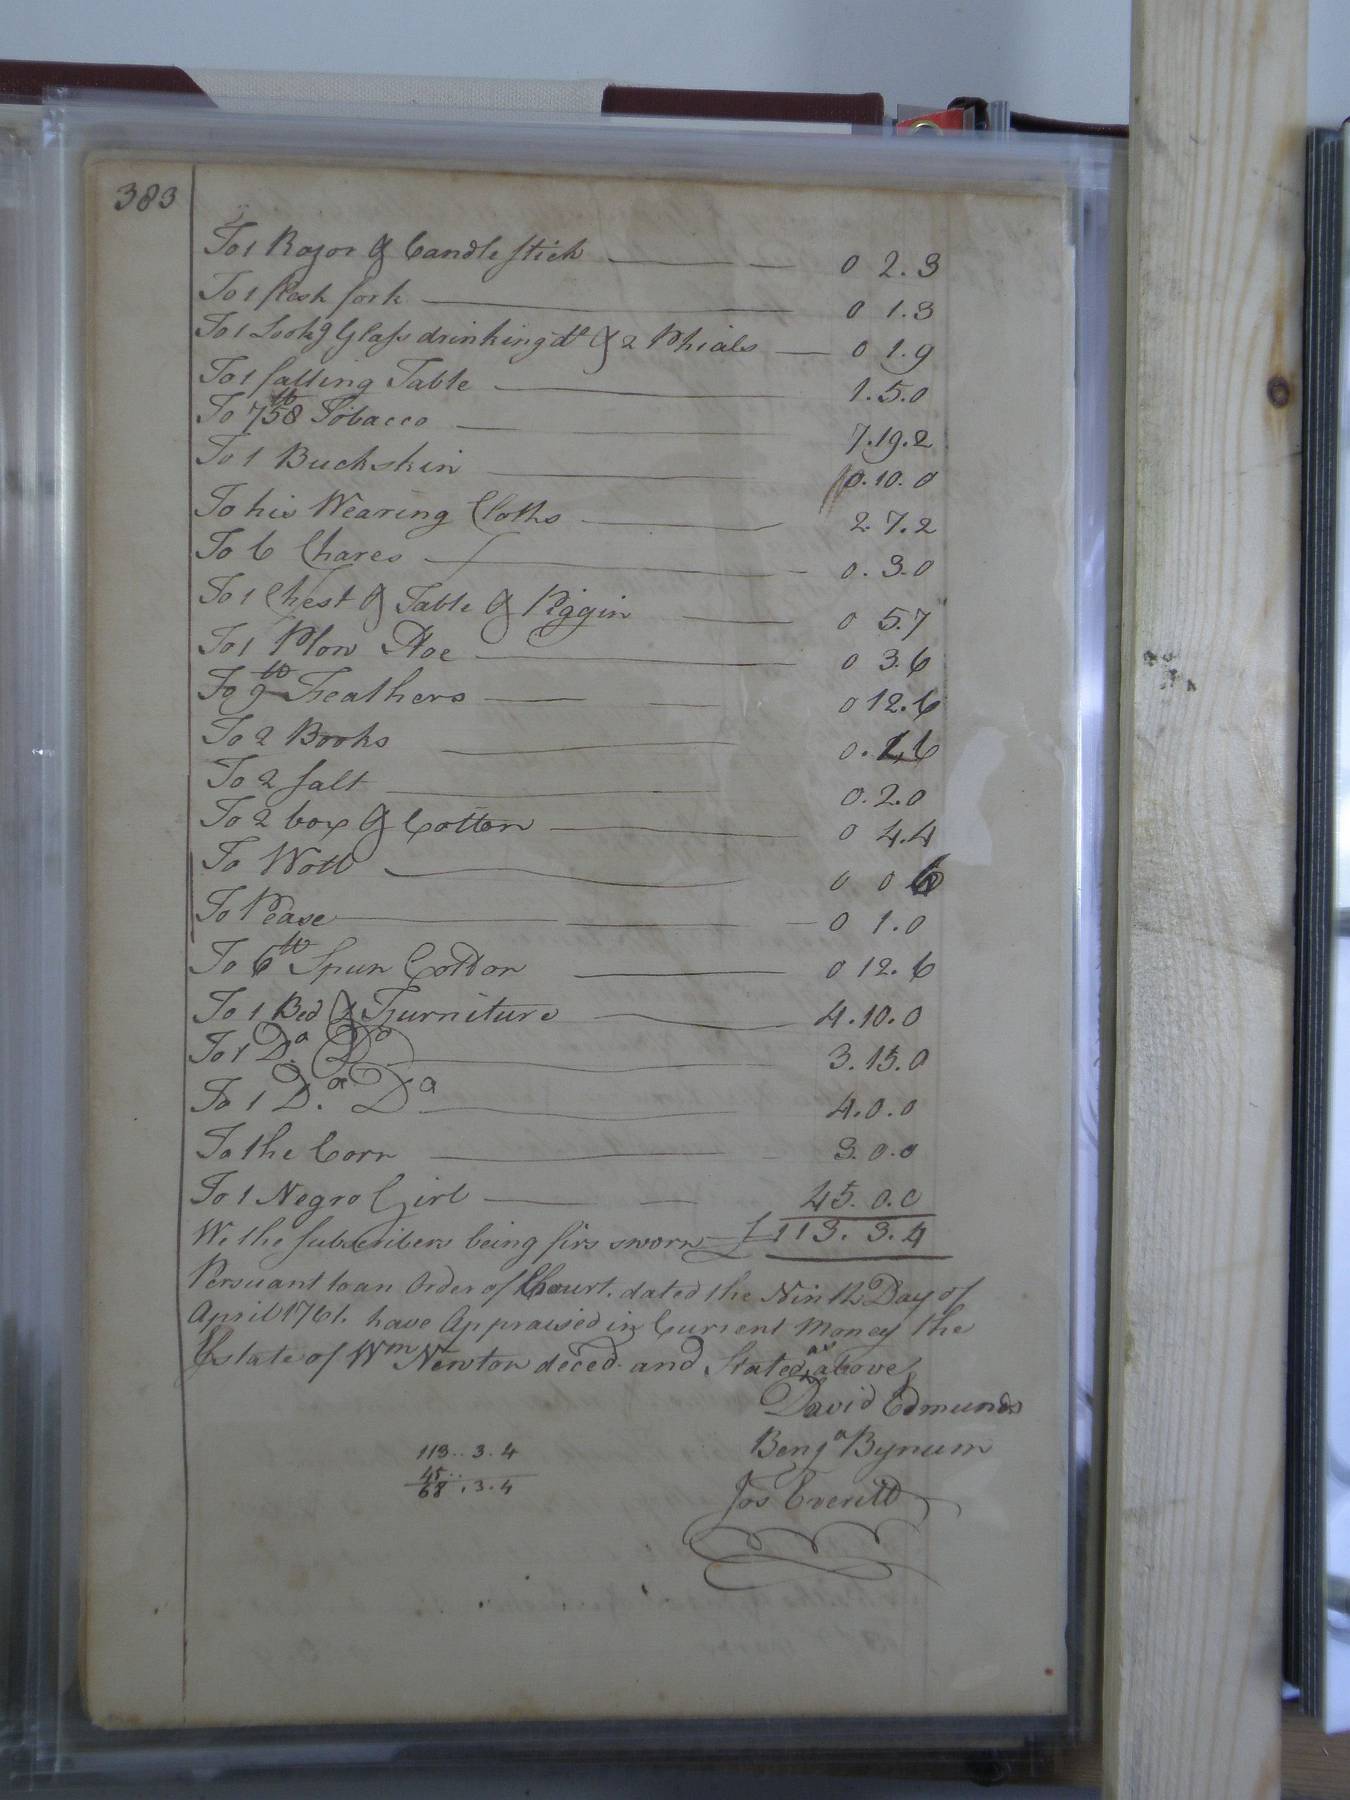 383
To 1 Razor & Candlestick 0 2.3
To 1 flesh fork 0 1.3
To 1 Lookg Glass drinking do & 2 Phials 0 1.9
To 1 falling Table 1.5.0
To 758 lb Tobacco 7.19.2
To 1 Buckskin 0.10.0
To his Wearing Cloths 2.7.2
To 6 Chares 0.3.0
To 1 Chest & Table & Piggin 0 5.7
To 1 Plow Hoe 0 3.6
To 9 lb Feathers 0 12.6
To 2 Books 0. 6
To 2 salt 0.2.0
To 2 box & Cotton 0 4.4
To 0 0 6
To Pease 0 1.0
To 6 lb Spun Cotton 0 12.6
To 1 Bed & Furniture 4.10.0
To 1 Do. Do 3.15.0
To 1 Do. Do 4.0.0
To the Corn 3.0.0
To 1 Negro Girl 45.0.0
We the subscribers being firs sworn £113.3.4
Persuant to an Order of Court. dated the Ninth Day of
April 1761. have Appraised in Current Money the
Estate of Wm Newton deced. and Stated as above
David Edmunds
Benja Bynum
113..3.4
45..
68.,3.4
Jos Everitt